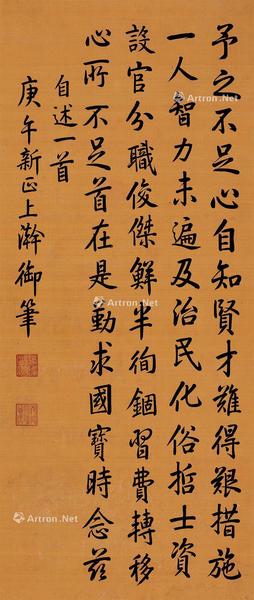 予之不足心自知賢才難得艱措施
一人智力未遍及治民化俗哲士資
設官分職俊傑鮮半徇錮習費轉移
心所不足首在是動求國寶時念茲
自述一首
庚午新正上澣御筆
Artron.Net
Artron.Net
Artron.Net
Artron.Net